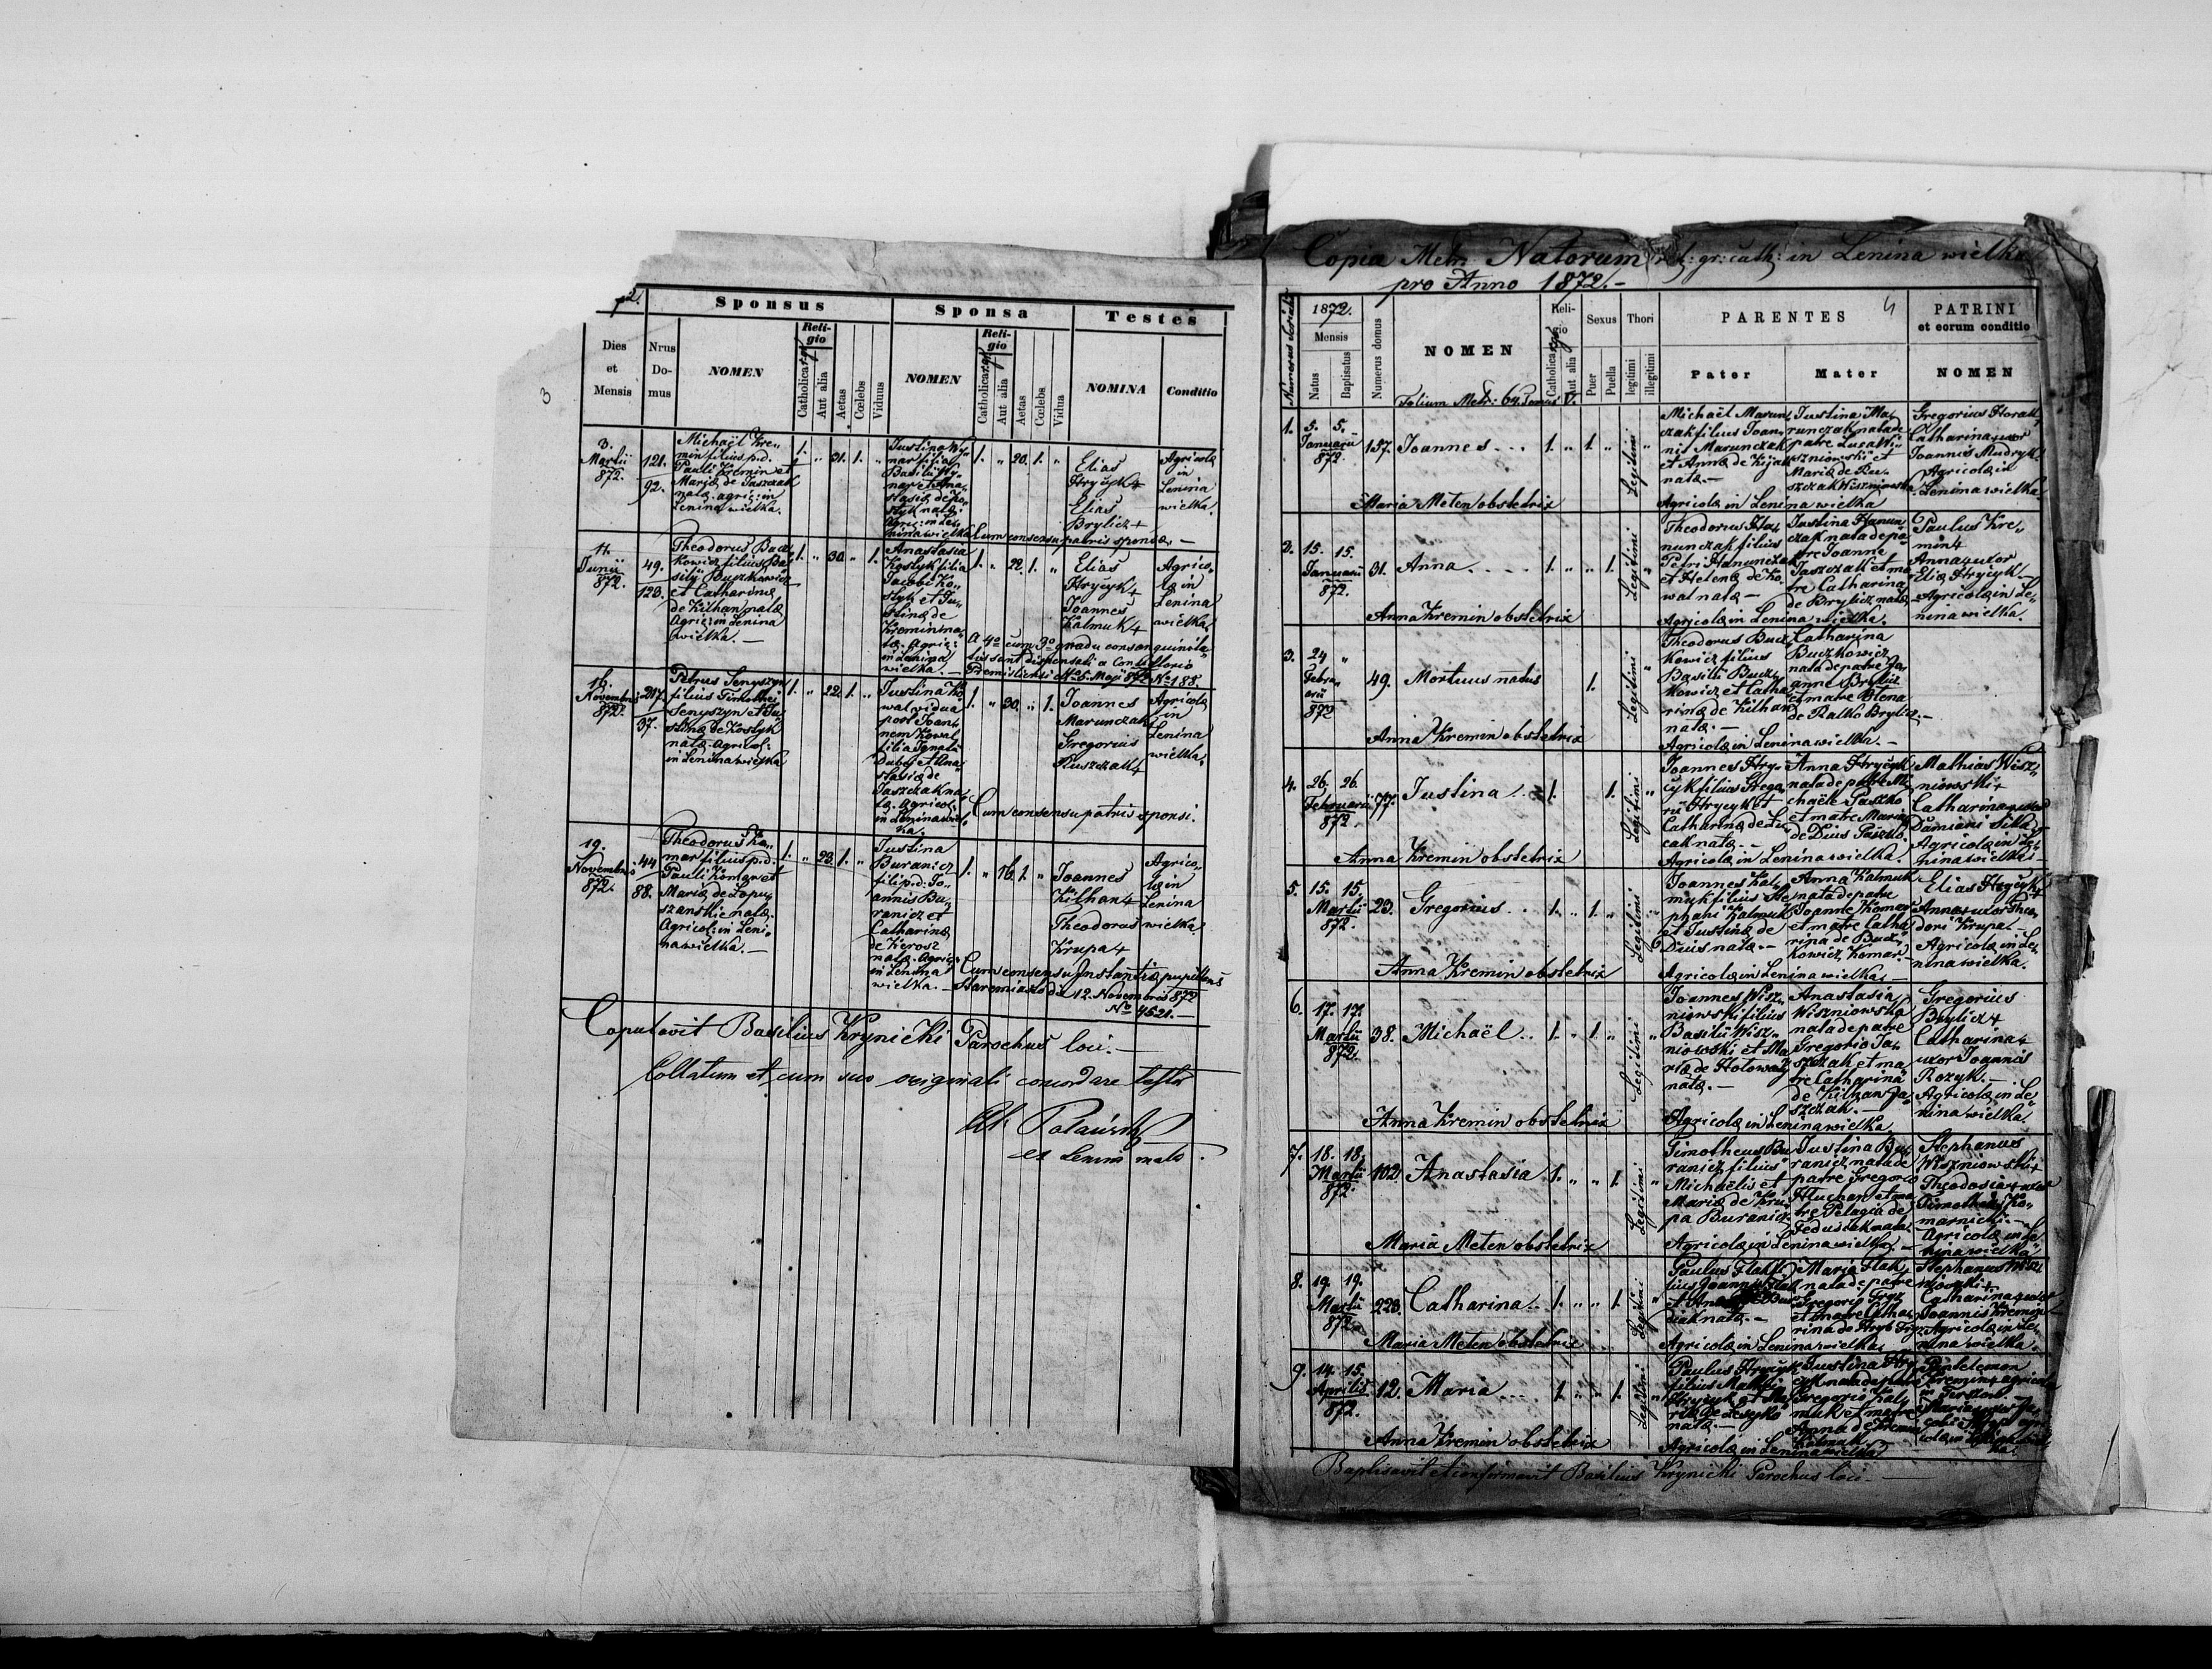 3
72.
Sponsus
Sponsa
Testes
Dies et Mensis
Nrus Domus
NOMEN
Religio
Catholica
Aut alia
Aetas
Cœlebs
Viduus
NOMEN
Religio
Catholica
Aut alia
Aetas
Cœlebs
Vidua
NOMINA
Conditio
3. Martii 872.
121. 92.
Michaël Kre„
min filius p.d.
Pauli Kremin et
Mariæ de Jaszczak
natæ agric: in
Lenina wielka.
1. „ 31. 1. „
Justina
filia
Basilii
et Ana„
stasiæ de Ko„
styk natæ.
Agric: in Le„
nina wielka
1. „ 20. 1. „
Elias
Hrycyk +
Elias
Brylicz +
Agricolæ
in
Lenina
wielka.
Cum consensu patris sponsæ. —
11. Junii 872.
49. 123.
Theodorus Bucz„
kowicz filius Ba„
silii Buczkowicz
et Catharinæ
de Kilhan natæ
Agric: in Lenina
wielka. —
1. „ 30. „ 1.
Anastasia
Kostyk filia
Jacobi Ko„
styk et Ju„
stinæ de
Kremin na„
tæ. Agric:
in Lenina
wielka. —
1. „ 22. 1. „
Elias
Hrycyk +
Joannes
Kalmuk +
Agrico„
læ in
Lenina
wielka.
A 4º cum 3º gradu consanguinita„
tis sunt dispensati a Consistorio
Premisliensi dto 5. Maji 872 Nº 188.
16. Novembris 872.
217. 37.
Petrus Senyszyn
filius Timothei
Senyszyn et Ju„
stinæ de Kostyk
natæ. Agricol:
in Lenina wielka
1. „ 22. 1. „
Justina Ko„
wal vidua
post Joan„
nem Kowal
filia Ignatii
et Ana„
stasiæ de
Jaszczak na„
tæ. Agricol:
in Lenina wiel„
ka.
1. „ 30. „ 1.
Joannes
Marunczak
Gregorius
Ruszczak +
Agricolæ
in
Lenina
wielka.
Cum consensu patris sponsi.
19. Novembris 872.
44 88.
Theodorus Ko„
mar filius p.d.
Pauli Komar et
Mariæ de Lopu„
szanski natæ.
Agricol: in Leni„
na wielka. —
1. „ 23. 1. „
Justina
Buranicz
filia p.d. Jo„
annis Bu„
ranicz et
Catharinæ
de Kierosz
natæ. Agric:
in Lenina
wielka. —
1. „ 16. 1. „
Joannes
Kilhan +
Theodorus
Krupa +
Agrico„
læ in
Lenina
wielka.
Cum consensu Instantiæ pupillaris
Staremiasto die 12. Novembris 872
Nº 4521. —
Copulavit Basilius Krynicki Parochus loci. —
Collatum et cum suo originali concordare testor
ex Lenina mala.
Copia Metr: Natorum rit: gr: cath: in Lenina wielka
pro Anno 1872. —
4
Numerus
1872.
Mensis
Natus
Baptisatus
Numerus domus
NOMEN
Folium Metr: 64. Tomus V.
Religio
Catholica
Aut alia
Sexus
Puer
Puella
Thori
legitimi
illegitimi
PARENTES
Pater
Mater
PATRINI
et eorum conditio
NOMEN
1. 5. 5. Januarii 872. 157. Joannes . . . 1. „ 1. „ Legitimi „
Michaël Marun„
czak filius Joan„
nis Marunczak
et Annæ de Kijak
natæ. —
Justina Ma„
runczak nata de
patre Luca Wi„
szniowski et
Maria de Ru„
szczak Wiszniowska.
Gregorius Horak +
Catharina uxor
Joannis Mudryk.
Agricolæ in
Lenina wielka.
Maria Meten obstetrix
Agricolæ in Lenina wielka
2. 15. 15. Januarii 872. 31. Anna . . . . 1. „ „ 1. Legitimi „
Theodorus Ha„
nunczak filius
Petri Hanunczak
et Helenæ de Ko„
wal natæ —
Justina Hanun„
czak nata de pa„
tre Joanne
Jaszczak et ma„
tre Catharina
de Brylicz nata.
Paulus Kre„
min +
Anna uxor
Eliæ Hrycyk —
Agricolæ in Le„
nina wielka.
Anna Kremin obstetrix
Agricolæ in Lenina wielka.
3. 24 „ Februarii 872 49. Mortuus natus 1. Legitimi „
Theodorus Bucz„
kowicz filius
Basilii Bucz„
kowicz et Catha„
rinæ de Kilhan
natæ. —
Catharina
Buczkowicz
nata de patre Jo„
anne Brylicz
et matre Helena
de Ralko Brylicz. —
Anna Kremin obstetrix
Agricolæ in Lenina wielka. —
4. 26. 26. Februarii 872. 77. Justina . . 1. 1. Legitimi „
Joannes Hry„
cyk filius Grego„
rii Hrycyk et
Catharinæ de Lu„
cak natæ. —
Anna Hrycyk
nata de patre Mi„
chaële Paszko
et matre Maria
de Duis Paszko.
Mathias Wisz„
niowski +
Catharina uxor
Damiani
Agricolæ in Le„
nina wielka. —
Anna Kremin obstetrix
Agricolæ in Lenina wielka.
5. 15. 15. Martii 872. 23. Gregorius . . 1. „ 1. „ Legitimi „
Joannes Kal„
muk filius Ste„
phani Kalmuk
et Justinæ de
Duis natæ. —
Anna Kalmuk
nata de patre
Joanne Komar
et matre Catha„
rina de Bucz„
kowicz Komar. —
Elias Hrycyk +
Anna uxor Theo„
dori Krupa. —
Agricolæ in Le„
nina wielka.
Anna Kremin obstetrix
Agricolæ in Lenina wielka. —
6. 17. 17. Martii 872. 38. Michaël . . 1. „ 1. „ Legitimi „
Joannes Wisz„
niowski filius
Basilii Wisz„
niowski et Ma„
riæ de Hotowaty
natæ. —
Anastasia
Wiszniowska
nata de patre
Gregorio Ja„
szczak et ma„
tre Catharina
de Kilhan Ja„
szczak. —
Gregorius
Brylicz +
Catharina +
uxor Joannis
Rozyk. —
Agricolæ in Le„
nina wielka.
Anna Kremin obstetrix
Agricolæ in Lenina wielka
7. 18. 18. Martii 872. 102. Anastasia 1. „ „ 1. Legitimi „
Timotheus Bu„
ranicz filius
Michaëlis et
Mariæ de Kru„
pa Buranicz
Justina Bu„
ranicz nata de
patre Gregorio
Hluchan et ma„
tre Pelagia de
Feduczak nata.
Stephanus
Wiszniowski +
Theodosia + uxor
Timothei Ko„
marnicki. —
Agricolæ in Le„
nina wielka
Maria Meten obstetrix
Agricolæ in Lenina wielka. —
8. 19. 19. Martii 872. 223. Catharina . . 1. „ „ 1. Legitimi „
Paulus Hak fi„
lius Joannis Hak
natæ. —
Maria Hak
nata de patre
Gregorio
et matre Catha„
rina de Hryb
Stephanus Wisz„
niowski +
Catharina uxor
Joannis Kremin
Agricolæ in Le„
nina wielka.
Maria Meten obstetrix
Agricolæ in Lenina wielka.
9. 14. 15. Aprilis 872. 12. Maria . . . 1. „ „ 1. Legitimi „
Paulus Hrycyk
filius
Hrycyk et Ma„
riæ de
natæ. —
Justina Hry„
cyk nata de patre
Gregorio Kal„
muk et matre
Anna de Kremin
Kalmuk —
Pantelemon
Kremin + agricola
in Terszow.
Maria uxor Ja„
cobi
Anna Kremin obstetrix
Agricolæ in Lenina wielka
Baptisavit et confirmavit Basilius Krynicki Parochus loci. —